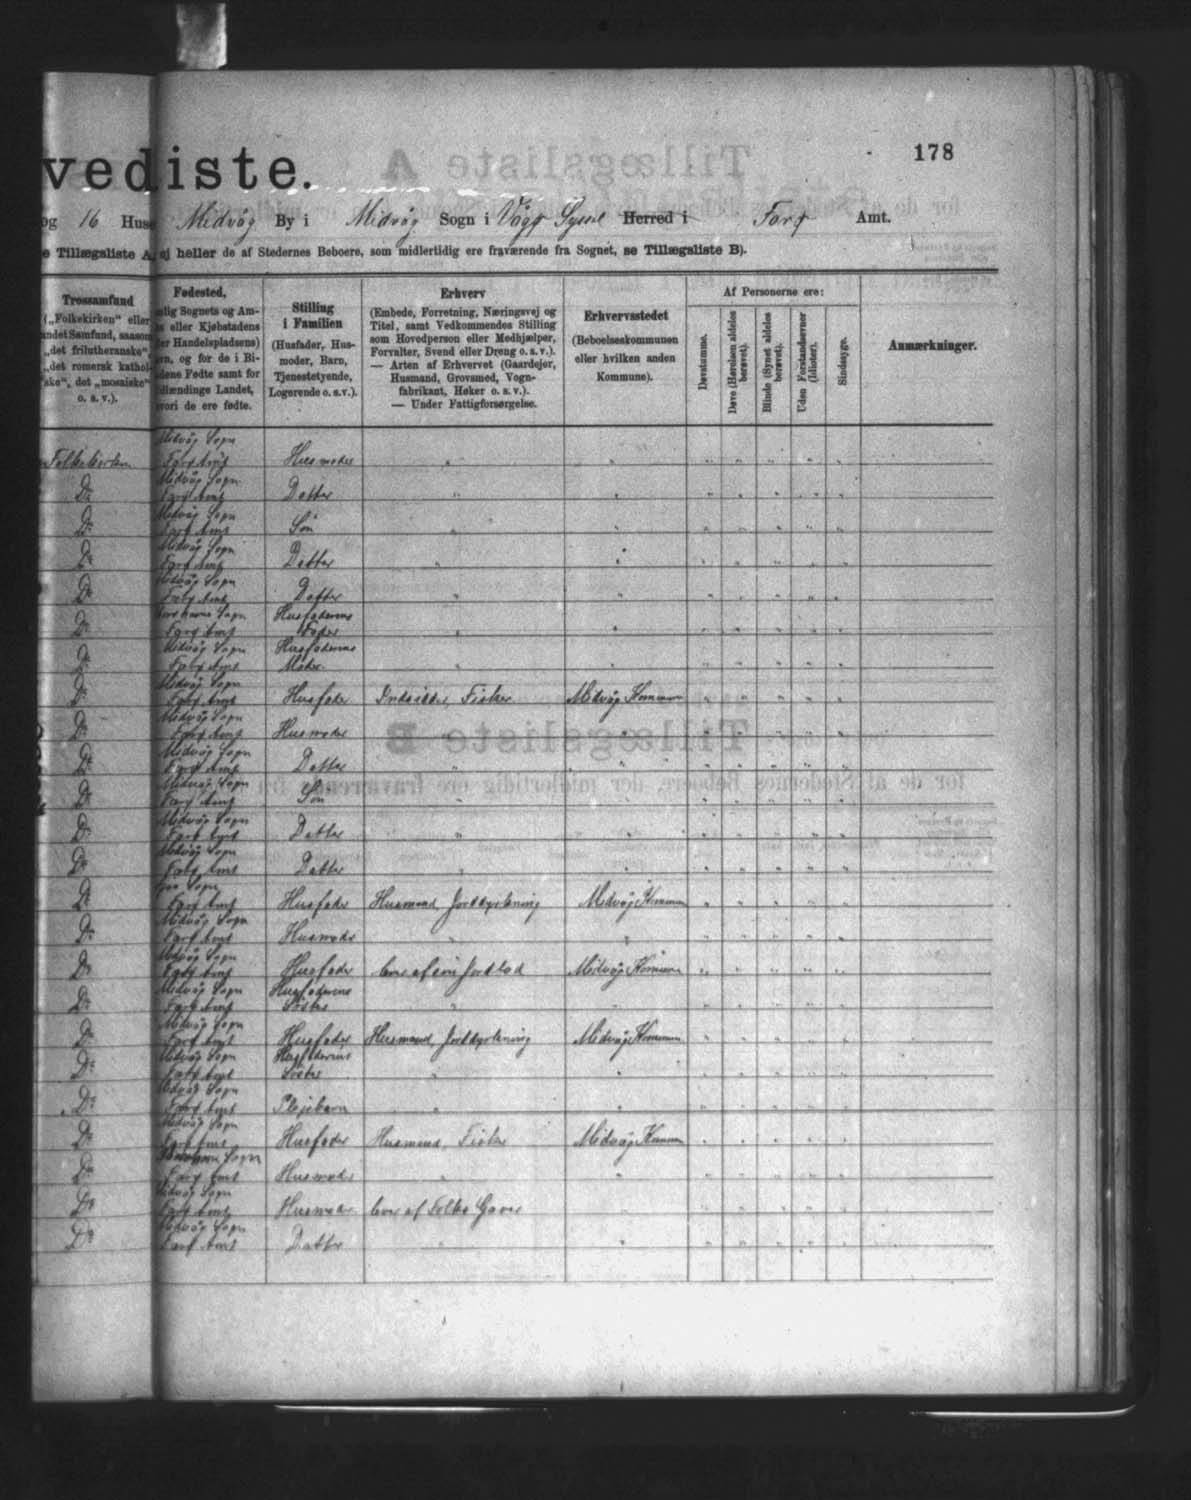 vediste.
178
og 16 Huse Midvåg By i Midvåg Sogn i Vågø Syssel Herred i Farø Amt.
e Tillægsliste A, ej heller de af Stedernes Beboere, som midlertidig ere fraværende fra Sognet, se Tillægsliste B).
Trossamfund
(„Folkekirken" eller
andet Samfund, saasom
„det frilutheranske",
„det romersk kathol-
ske", det „mosaiske"
o. s. v.).
Fødested,
nlig Sognets og Am-
ts eller Kjøbstadens
ler Handelspladsens)
vn, og for de i Bi-
dene Fødte samt for
dlændinge Landet,
vori de ere fødte.
Stilling
i Familien
(Husfader, Hus-
moder, Barn,
Tjenestetyende,
Logerende o. s. v.).
Erhverv
(Embede, Forretning, Næringsvej og
Titel, samt Vedkommendes Stilling
som Hovedperson eller Medhjælper,
Forvalter, Svend eller Dreng o. s. v.).
— Arten af Erhvervet (Gaardejer,
Husmand, Grovsmed, Vogn-
fabrikant, Høker o. s. v.).
— Under Fattigforsørgelse.
Erhvervsstedet
(Beboelseskommunen
eller hvilken anden
Kommune).
Af Personerne ere:
Døvstumme.
Døve (Hørelsen aldeles
berøvet).
Blinde (Synet aldeles
berøvet).
Uden Forstandsevner
(Idioter).
Sindssyge.
Anmærkninger.
Midvåg Sogn
Folkekirken Farø Amt Husmoder " " " " " " "
Midvåg Sogn
Do Farø Amt Datter " " " " " " "
Midvåg Sogn
Do Farø Amt Søn " " " " " " "
Midvåg Sogn
Do Farø Amt Datter " " " " " " "
Midvåg Sogn
Do Farø Amt Datter " " " " " " "
Sogn Husfaderens
Do Farø Amt Fader " " " " " " "
Midvåg Sogn Husfaderens
Do Farø Amt Moder " " " " " " "
Midvåg Sogn
Do Farø Amt Husfader Indsidder, Fisker Midvåg Kommune " " " " "
Midvåg Sogn
Do Farø Amt Husmoder " " " " " " "
Midvåg Sogn
Do Farø Amt Datter " " " " " " "
Midvåg Sogn
Do Farø Amt Søn " " " " " " "
Midvåg Sogn
Do Farø Amt Datter " " " " " " "
Midvåg Sogn
Do Farø Amt Datter " " " " " " "
Sogn
Do Farø Amt Husfader Husmand, Jorddyrkning Midvåg Kommune " " " " "
Midvåg Sogn
Do Farø Amt Husmoder " " " " " " "
Midvåg Sogn
Do Farø Amt Husfader lever af sin Jordlod Midvåg Kommune " " " " "
Midvåg Sogn Husfaderens
Do Farø Amt Søster " " " " " " "
Midvåg Sogn
Do Farø Amt Husfader Husmand, Jorddyrkning Midvåg Kommune " " " " "
Midvåg Sogn Husfaderens
Do Farø Amt Søster " " " " " " "
Midvåg Sogn
Do Farø Amt Plejebarn " " " " " " "
Midvåg Sogn
Do Farø Amt Husfader Husmand, Fisker Midvåg Kommune " " " " "
Sogn
Do Farø Amt Husmoder " " " " " " "
Midvåg Sogn
Do Farø Amt Husmoder lever af Folks Gaver " " " " " "
Midvåg Sogn
Do Farø Amt Datter " " " " " " "